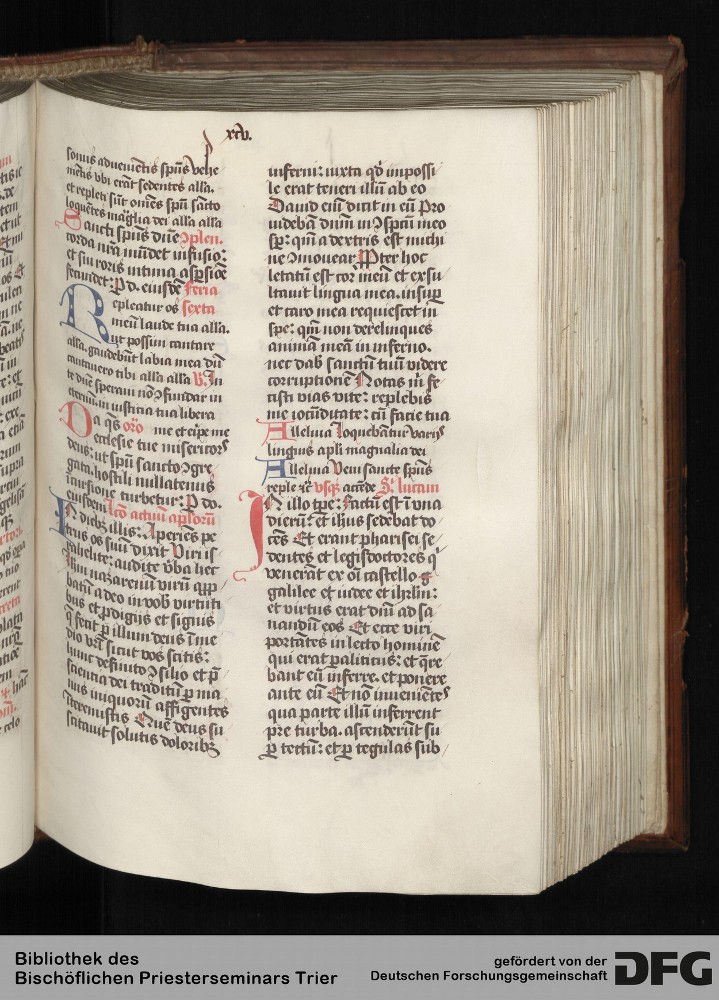 xcv.
sonus aduenie͂tis sp͂us vehe
me͂tis vbi era͂t sedentes alla.
et repleti su͂t om͂es sp͂u sa͂cto
loque͂tes ma͂glia dei alla alla
Sancti sp͂us dn͂e ꝯplen.
corda nr͂a mu͂det infusio:
et sui roris intima asp͂sio͂e
fecundet: P d. eiusde͂ feria
Repleatur os sexta
meu͂ laude tua alla.
ut possim cantare
alla. gaudebu͂t labia mea du͂
cantauero tibi alla alla V. In
te dn͂e speraui no͂ ꝯfundar in
eternu͂. in iusticia tua libera
Da q͂s oro͂ me et eripe me
ecclesie tue misericors
deus: ut sp͂u sancto ꝯgre
gata. hostili nullatenus
incursione turbetur: P do.
eiusde͂ lc͂o actuu͂ ap͂loru͂
In diebꝫ illis: Aperie͂s pe
trus os suu͂ dixit Viri is
rahelite: audite v͂ba hec
Ih͂m nazarenu͂ viru͂ ap͂p
batu͂ a deo in vob͂ virtuti
bus et ꝓdigijs et signis
q͂ fecit ꝑ illum deus i͂ me
dio vr͂i sicut vos scitis:
hunc definito ꝯsilio et p͂
scientia dei traditu͂ ꝑ ma
nus iniquoru͂ affigentes
i͂teremistis Que͂ deus su
scitauit solutis doloribꝫ
inferni: iuxta qd͂ impossi
le erat teneri illu͂ ab eo
Dauid eni͂ dicit in eu͂ Pro
uideba͂ dn͂m in ꝯsp͂tu meo
sp͂: qm͂ a dextris est michi
ne ꝯmouear Pꝓter hoc
letatu͂ est cor meu͂ et exsu
ltauit lingua mea. insuꝑ
et caro mea requiescet in
spe: qm͂ non derelinques
anima͂ mea͂ in inferno.
nec dab͂ sanctu͂ tuu͂ videre
corruptione͂ Notas m͂ fe
cisti vias vite: replebis
me iocu͂ditate: cu͂ facie tua
Alleluia loqueba͂tur varijs
linguis ap͂li magnalia dei
Alleluia Veni sancte sp͂us
reple ⁊c͂ vsqꝫ acce͂de S͂ lucam
In illo tp͂e: factu͂ est i͂ vna
dieru͂: et ih͂us sedebat do
ce͂s Et erant pharisei se
dentes et legisdoctores q͂
venera͂t ex oi͂ castello
galilee et iudee et ih͂rlm͂:
et virtus erat dn͂i ad sa
nandu͂ eos Et ecce viri
porta͂tes in lecto homine͂
qui erat paliticus: et q͂re
bant eu͂ inferre. et ponere
ante eu͂ Et no͂ inuenie͂tes
qua parte illu͂ inferrent
pre turba. ascenderu͂t su
ꝑ tectu͂: et ꝑ tegulas sub
Bibliothek des
Bischöflichen Priesterseminars Trier
gefördert von der
Deutschen Forschungsgemeinschaft
DFG